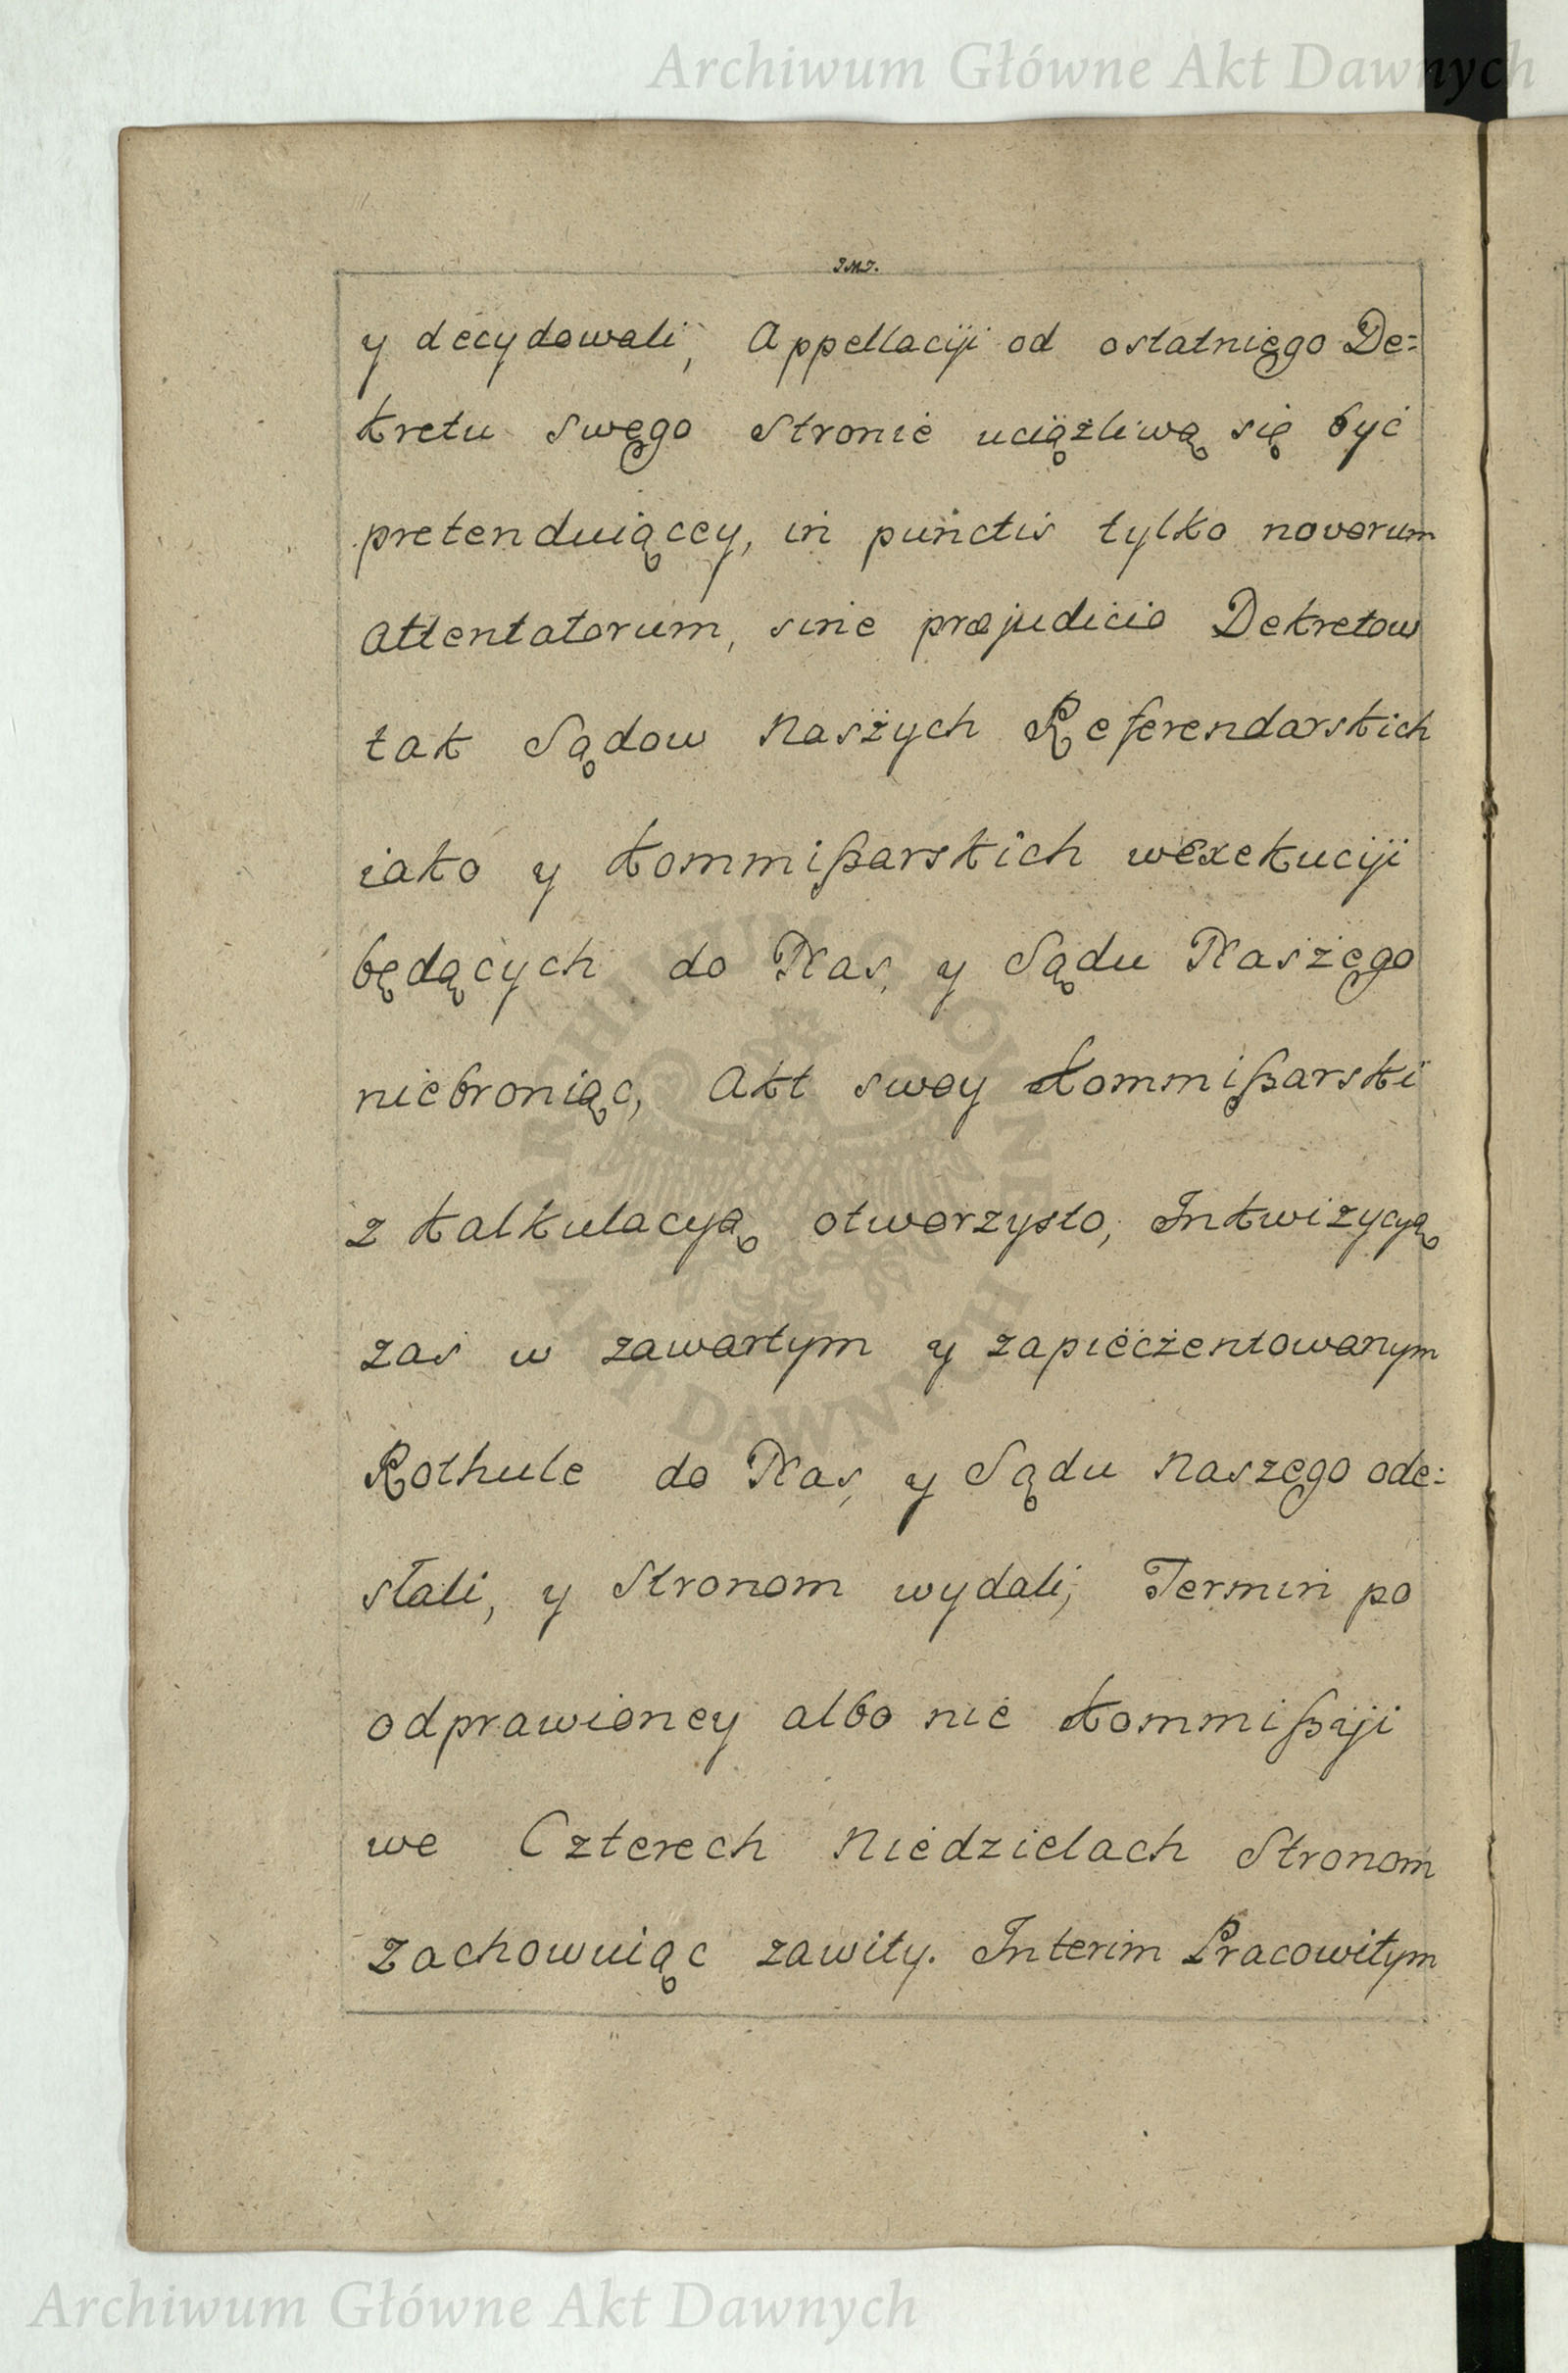 Archiwum Główne Akt Dawnych
JMJ.
y decydowali, Appellacyi od ostatniego De=
kretu swego Stronie uciążliwą się być
pretenduiącey, in punctis tylko novorum
attentatorum, sine præjudicio Dekretow
tak Sądow Naszych Referendarskich
iako y Kommißarskich wexekucyi
będących do Nas, y Sądu Naszego
niebroniąc, Akt swoy Kommißarski
z kalkulacyą otworzysto, Inkwizycyą
zas w zawartym y zapieczentowanym
Rothule do Nas, y Sądu Naszego ode=
słali, y Stronom wydali; Termin po
odprawioney albo nie Kommißyi
we Czterech Niedzielach Stronom
Zachowuiąc zawity. Interim Pracowitym
ARCHIWUM GŁÓWNE
AKT DAWNYCH
Archiwum Główne Akt Dawnych